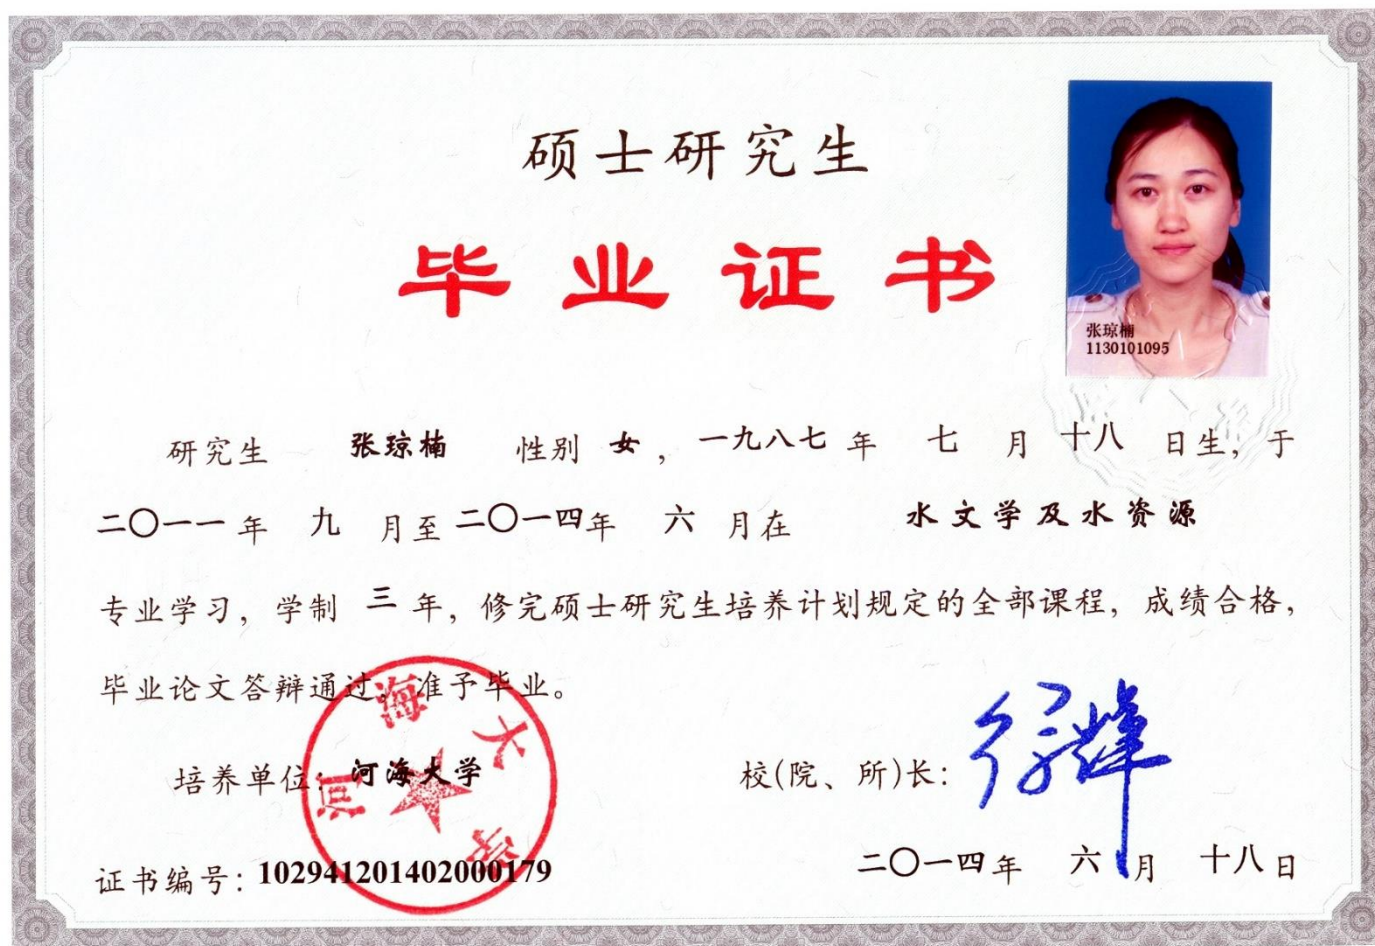 硕士研究生
毕业证书
张琼楠
1130101095
研究生 张琼楠 性别 女，一九八七 年 七 月 十八 日生，于
二〇一一 年 九 月至 二〇一四年 六 月在 水文学及水资源
专业学习，学制 三 年，修完硕士研究生培养计划规定的全部课程，成绩合格，
毕业论文答辩通过，准予毕业。
培养单位：河海大学
河海大学
校(院、所)长：
证书编号：102941201402000179
二〇一四年 六 月 十八 日